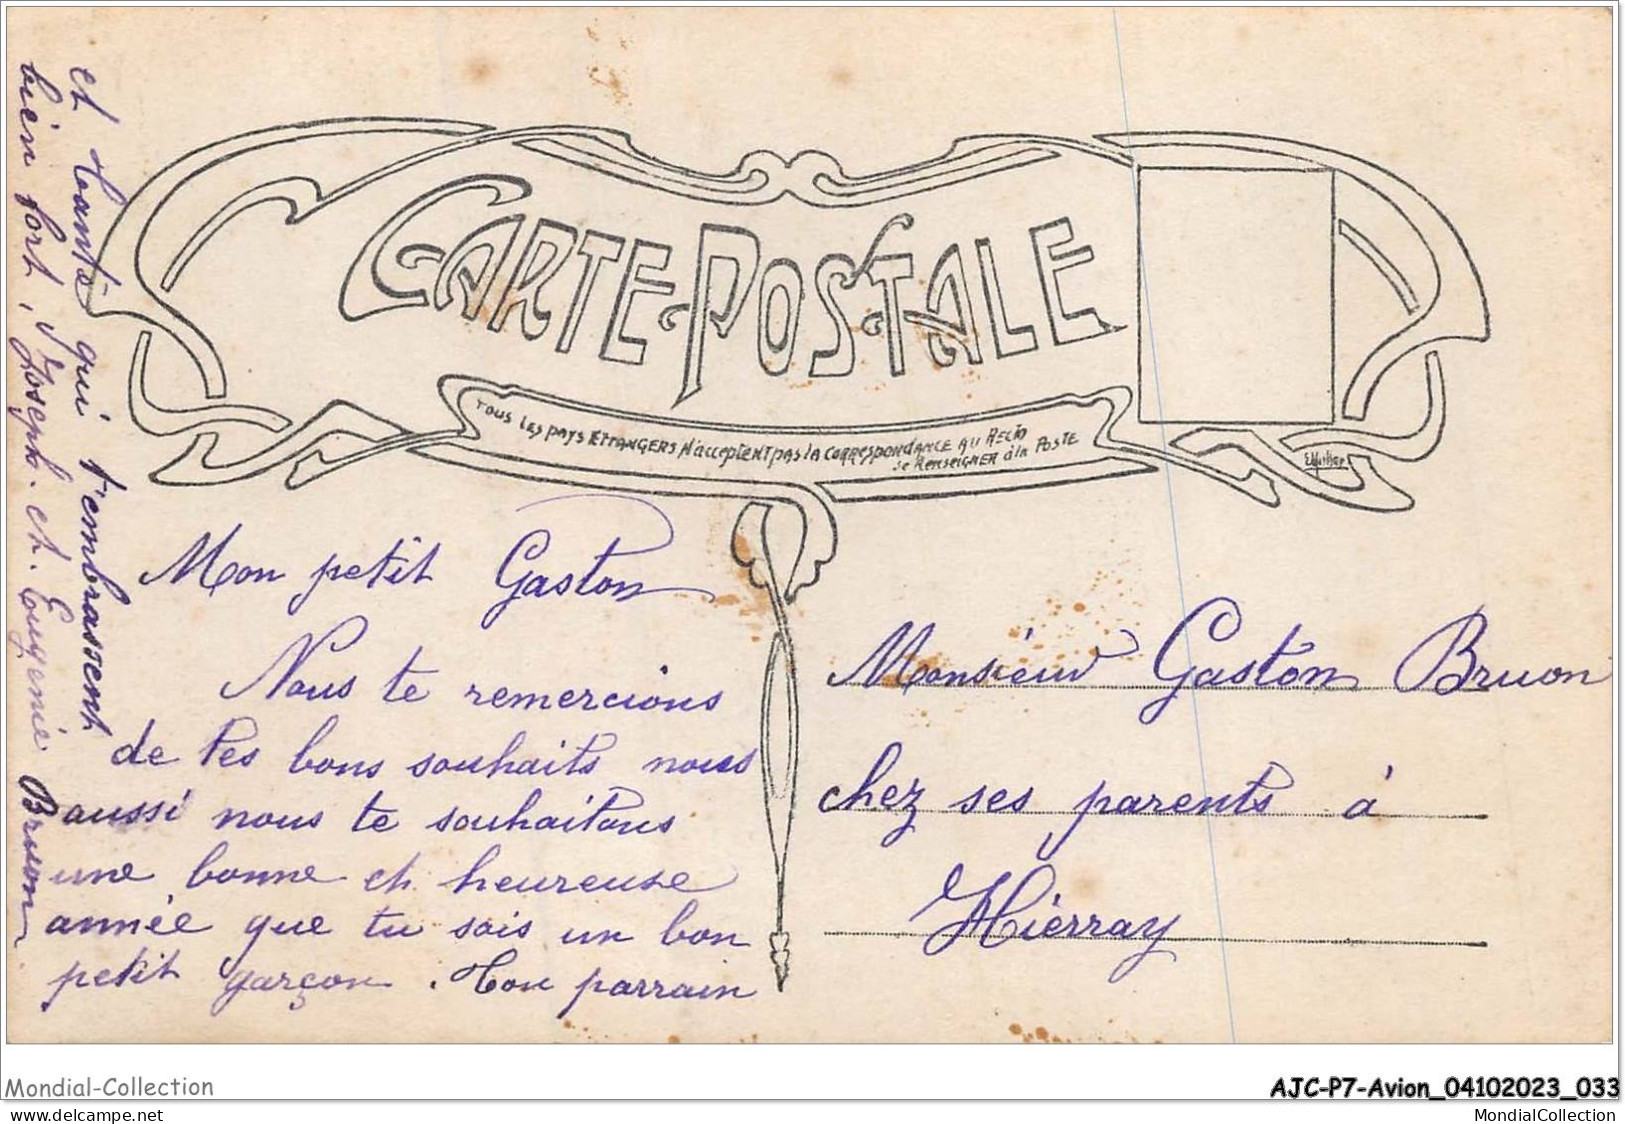 CARTE-POSTALE
Tous les pays étrangers n'acceptent pas la correspondance au recto
se renseigner à la Poste
Mon petit Gaston
Nous te remercions
de tes bons souhaits nous
aussi nous te souhaitons
une bonne et heureuse
année que tu sois un bon
petit garçon. Ton parrain
et tante qui t'embrassent
bien fort, Joseph et Eugenie Bruon
Monsieur Gaston Bruon
chez ses parents à
Hierray
Mondial-Collection
AJC-P7-Avion_04102023_033
www.delcampe.net
MondialCollection